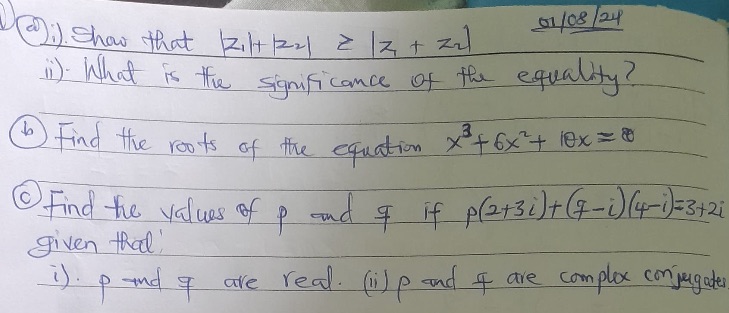 01/08/24
(a) i). Show that |z₁|+|z₂| ≥ |z₁ + z₂|
ii). What is the significance of the equality?
(b) Find the roots of the equation x³+6x²+10x=0
(c) Find the values of p and q if p(2+3i)+(q-i)(4-i)=3+2i
given that:
i). p and q are real. (ii) p and q are complex conjugates